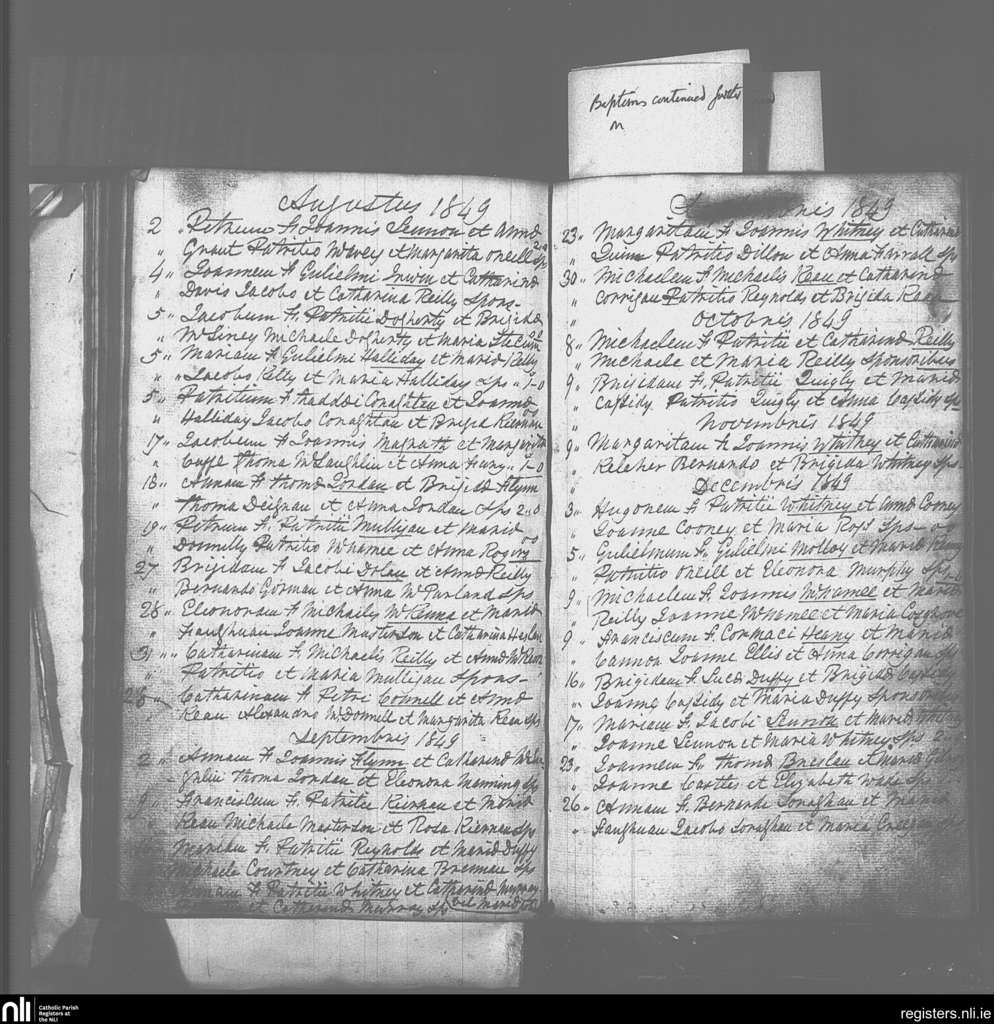 Baptisms continued
Augustus 1849
2 " Petrum F. Joannis Lennon et Anna
" Grant Patritio McVey et Margarita Oneill Sps
4 " Joannem F. Gulielmi Irwin et Catharina
" Davis Jacobo et Catharina Reilly Spons-
5 " Jacobum F. Patritii Dogherty et Brigida
" Michaele Dogherty et Maria
5 " Mariam F. Gulielmi Halliday et Maria Kelly
" " Jacobo Kelly et Maria Halliday Sps " 1-0
5 " Patritium F. Thaddei Conaghtan et Joanna
" Halliday Jacobo Conaghtan et Brigid Kiernan
17 " Jacobum F. Joannis Magrath et Margarita
" Thoma McLaughlin et Anna " 1-0
18 " Annam F. Thoma Jordan et Brigida Flynn
Thoma Deignan et Anna Jordan Sps 2..0
19 " Petrum F. Patritii Mulligan et Maria
" Donnelly Patritio McNamee et Anna
27 " Brigidam F. Jacobi Dolan et Anna Reilly
" Bernardo Gorman et Anna McParland Sps
28 " Eleonoram F. Michaelis McKenna et Maria
" Faughnan Joanne Masterson et Catharina
31 " " Catharinam F. Michaelis Reilly et Anna
" " Patritio et Maria Mulligan Spons-
28 " Catharinam F. Petri Connell et Anna
" Kean Alexandro McDonnell et Margarita Kean Sps
Septembris 1849
2 " Annam F. Joannis Flynn et Catharina
Thoma Jordan et Eleonora Manning Sps
9 " Franciscum F. Patritii Kiernan et Maria
Kean Michaele Masterson et Rosa Kiernan Sps
Mariam F. Patritii Reynolds et Maria Duffy
Michaele Courtney et Catharina Brennan Sps
F. Patritii Whitney et Catharina Murray
et Catharina Murray Sps vel Maria
1849
23 " Margaritam F. Joannis Whitney et Catharina
" Quinn Patritio Dillon et Anna Farrall Sps
30 " Michaelem F. Michaelis Kean et Catharina
" Corrigan Patritio Reynolds et Brigida Kean
" Octobris 1849
8 " Michaelem F. Patritii et Catharina Reilly
" Michaele et Maria Reilly Sponsoribus
9 " Brigidam F. Patritii Quigly et Maria
" Cassidy Patritio Quigly et Anna Cassidy Sps
Novembris 1849
9 " Margaritam F. Joannis Whitney et Catharina
" Kelaher Bernardo et Brigida Whitney Sps
" Decembris 1849
3 " Hugonem F. Patritii Whitney et Anna Cooney
" Joanne Cooney et Maria Ross Sps
5 " Gulielmum F. Gulielmi Molloy et Maria
" Patritio Oneill et Eleonora Murphy Sps
9 " Michaelem F. Joannis McNamee et Maria
" Reilly Joanne McNamee et Maria Cosgrove
9 " Franciscum F. Cormaci Heany et Maria
" Cannon Joanne Ellis et Anna Corrigan Sps
16 " Brigidam F. Luca Duffy et Brigida Cassidy
" Joanne Cassidy et Maria Duffy
17 " Mariam F. Jacobi Lennon et Maria
" Joanne Lennon et Maria Whitney Sps
23 " Joannem F. Thoma Breslan et Maria
" Joanne Castles et Elizabeth Wade Sps
26 " Annam F. Bernardi Sonaghan et
" Faughnan Jacobo Sonaghan et Maria
nli
Catholic Parish
Registers at
the NLI
registers.nli.ie